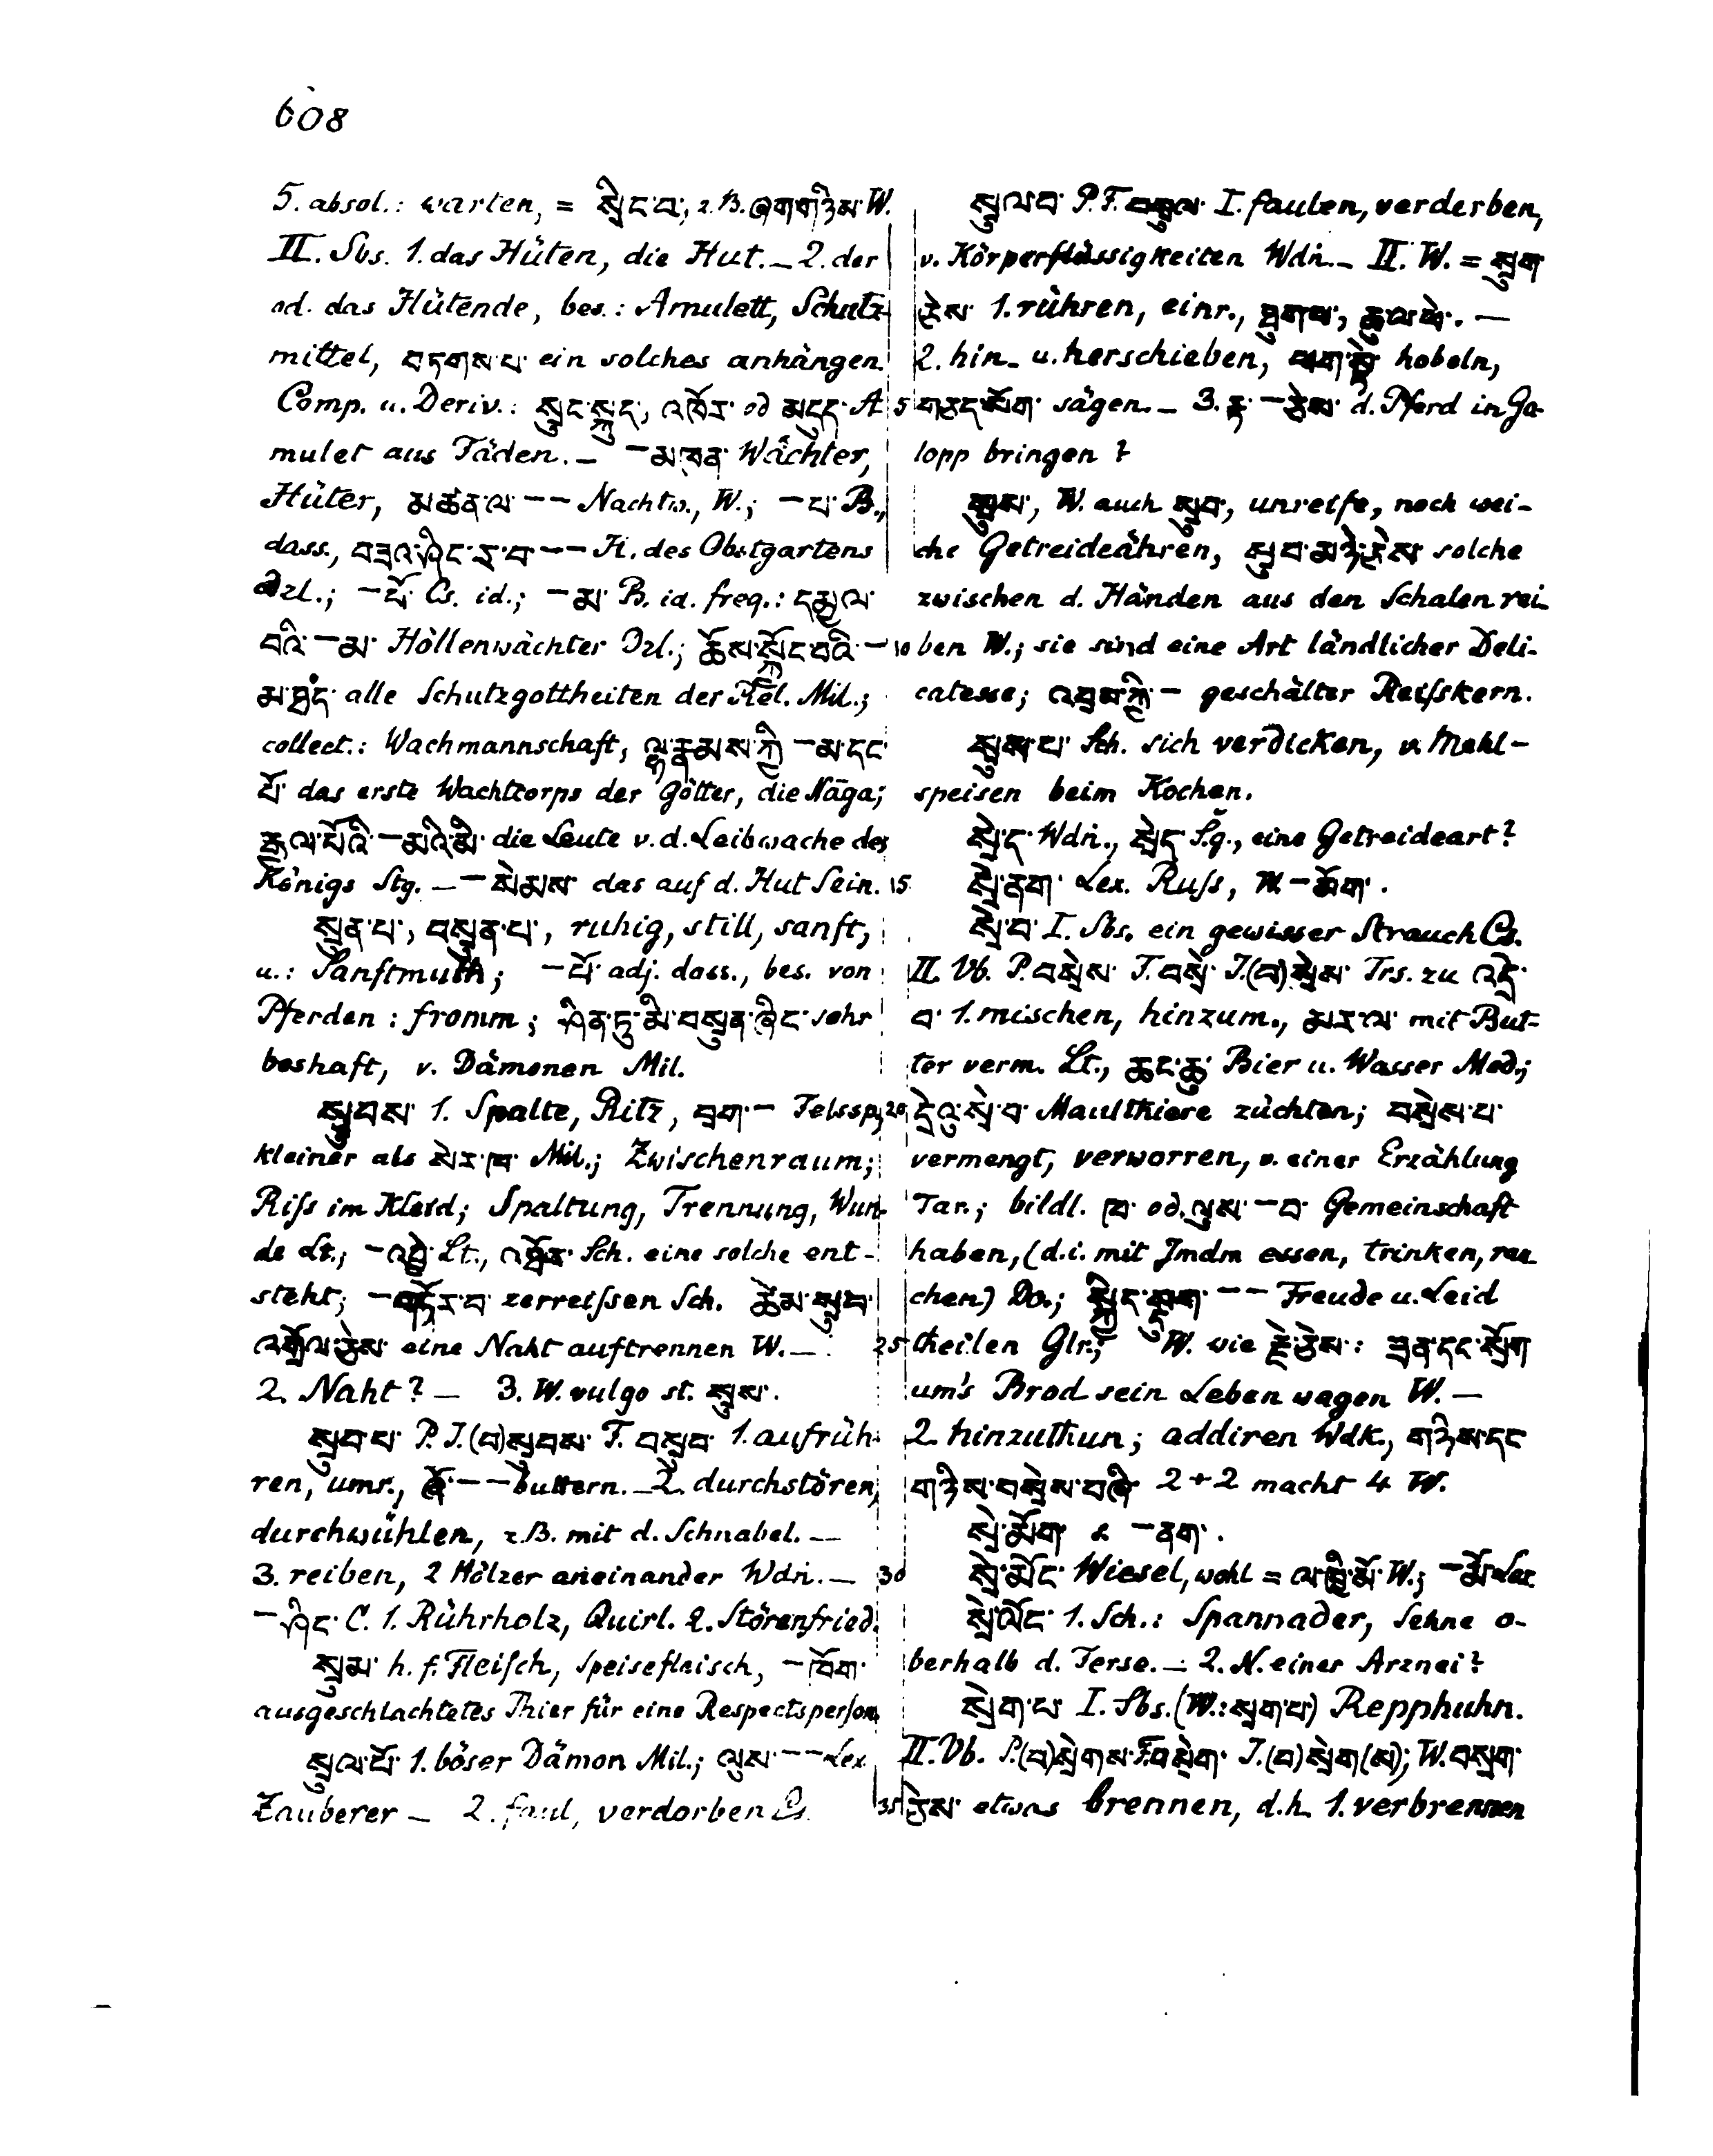 608
5. absol.: warten, = སྲིང་བ་, z.B. ཞག་གཉིས་ W.
II. Sbs. 1. das Hüten, die Hut. – 2. der
od. das Hütende, bes.: Amulett, Schutz-
mittel, བཏགས་པ་ ein solches anhängen.
Comp. u. Deriv.: སྲུང་སྐུད་, འཁོར་ od མདུད་ A-
mulet aus Fäden. – –མ་ཁན་ Wächter,
Hüter, མཚན་ལ་ –– Nachtw., W.; –པ་ B.,
dass., བཟའ་ཤིང་ར་བ་ –– H. des Obstgartens
Dzl.; –པོ་ Cs. id.; –མ་ B. id. freq.: དམྱལ་
བའི་ –མ་ Höllenwächter Dzl.; ཆོས་སྐྱོང་བའི་ –
མ་ཐང་ alle Schutzgottheiten der Rel. Mil.;
collect.: Wachmannschaft, ལྷ་རྣམས་ཀྱི་ –མ་དང་
པོ་ das erste Wachtcorps der Götter, die Nāga;
རྒྱལ་པོའི་ –མའི་མི་ die Leute v. d. Leibwache des
Königs Stg. – –སེམས་ das auf d. Hut Sein.
སྲུན་པ་, བསྲུན་པ་, ruhig, still, sanft,
u.: Sanftmuth; –པོ་ adj. dass., bes. von
Pferden: fromm; ཤིན་ཏུ་མི་བསྲུན་ཞིང་ sehr
boshaft, v. Dämonen Mil.
སྲུབས་ 1. Spalte, Ritz, བྲག་ – Felssp.,
kleiner als སེར་ཁ་ Mil.; Zwischenraum;
Riſs im Kleid; Spaltung, Trennung, Wun-
de Lt.; –འབྱེ་ Lt., འཐོན་ Sch. eine solche ent-
steht; –གཏོར་བ་ zerreiſsen Sch. ཚེམ་སྲུབ་
འགྲོལ་ཅེས་ eine Naht auftrennen W. –
2. Naht? – 3. W. vulgo st. སྲུས་.
སྲུབ་པ་ P. I.(བ)སྲུབས་ F. བསྲུབ་ 1. aufrüh-
ren, umr., ཞོ་ –– buttern. – 2. durchstören,
durchwühlen, z.B. mit d. Schnabel. –
3. reiben, 2 Hölzer aneinander Wdṅ. –
–ཤིང་ C. 1. Rührholz, Quirl. 2. Störenfried.
སྲུམ་ h. f. Fleiſch, Speisefleisch, –ཁོག་
ausgeschlachtetes Thier für eine Respectsperſon.
སྲུལ་པོ་ 1. böser Dämon Mil.; ལུས་ –– Lex.
Zauberer – 2. faul, verdorben Cs.
སྲུལ་བ་ P. F. བསྲུལ་ I. faulen, verderben,
v. Körperflüssigkeiten Wdṅ. – II. W. = སྲུག་
ཅེས་ 1. rühren, einr., –
2. hin- u. herschieben, hobeln,
sägen. – 3. རྟ་ –ཅེས་ d. Pferd in Ga-
lopp bringen?
སྲུས་, W. auch སྲུབ་, unreife, noch wei-
che Getreideähren, སྲུབ་མཉེ་ཅེས་ solche
zwischen d. Händen aus den Schalen rei-
ben W.; sie sind eine Art ländlicher Deli-
catesse; འབྲས་ཀྱི་ – geschälter Reiſskern.
སྲུས་པ་ Sch. sich verdicken, v. Mehl-
speisen beim Kochen.
སྲེ་ད་ Wdṅ., སྲེད་ S.g., eine Getreideart?
སྲེ་ནག་ Lex. Ruſs, W. –མོག་.
སྲེ་བ་ I. Sbs. ein gewisser Strauch Cs.
II. Vb. P. བསྲེས་ F. བསྲེ་ I.(བ)སྲེས་ Trs. zu འདྲེ་
བ་ 1. mischen, hinzum., མར་ལ་ mit But-
ter verm. Lt., ཆང་ཆུ་ Bier u. Wasser Med.;
དྲེའུ་སྲེ་བ་ Maulthiere züchten; བསྲེས་པ་
vermengt, verworren, v. einer Erzählung
Tar.; bildl. ཁ་ od. ལུས་ –བ་ Gemeinschaft
haben, (d.i. mit Jmdm essen, trinken, rau-
chen) Do.; སྐྱིད་སྡུག་ –– Freude u. Leid
theilen Glr.; W. wie རྗེ་ཅེས་: ཟན་དང་སྲོག་
um's Brod sein Leben wagen W. –
2. hinzuthun; addiren Wdk., གཉིས་དང་
གཉིས་བསྲེས་བཞི་ 2 + 2 macht 4 W.
སྲེ་མོག་ s. –ནག་.
སྲེ་མོང་ Wiesel, wohl = ལ་ཀྲི་མོ་ W.; –མོ་ Lex.
སྲེ་ལོང་ 1. Sch.: Spannader, Sehne o-
berhalb d. Ferse. – 2. N. einer Arznei?
སྲེག་པ་ I. Sbs. (W.: སྲག་པ་) Repphuhn.
II. Vb. P.(བ)སྲེགས་ F. བསྲེག་ I.(བ)སྲེག(ས); W. བསྲག་
ཅེས་ etwas brennen, d.h. 1. verbrennen